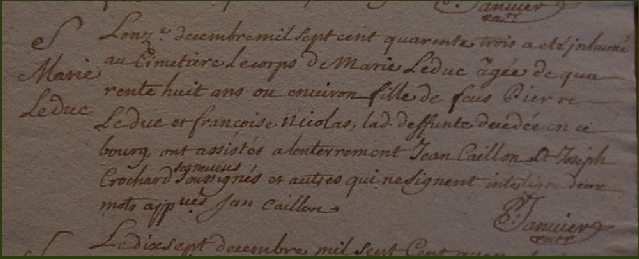 P. Janvier
curé
S
Marie
Leduc
L'onz.e decembre mil sept cent quarente trois a eté inhumé
au Cimetaire le corps d Marie Leduc âgée de qua
rente huit ans ou environ fille de feus Pierre
Leduc et francoise Nicolas, lad. deffunte decedée en ce
bourg, ont assistés a lenterrement Jean Caillon et Joseph
Crochard soussignés et autres qui ne signent interligne deux
mots app
Jan Caillon
P. Janvier
curé
Le dix sept decembre mil sept Cent